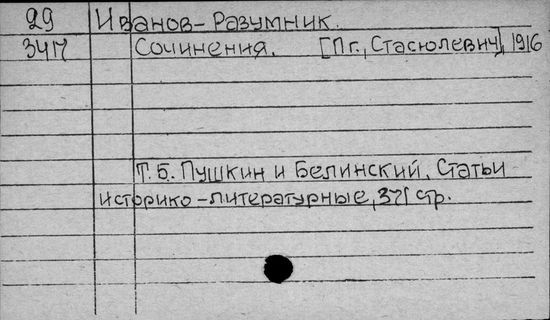 29 Иванов-Разумник.
3417 Сочинения. [Пг., Стасюлевич], 1916
Т.5. Пушкин и Белинский. Статьи
историко-литературные, 371 стр.